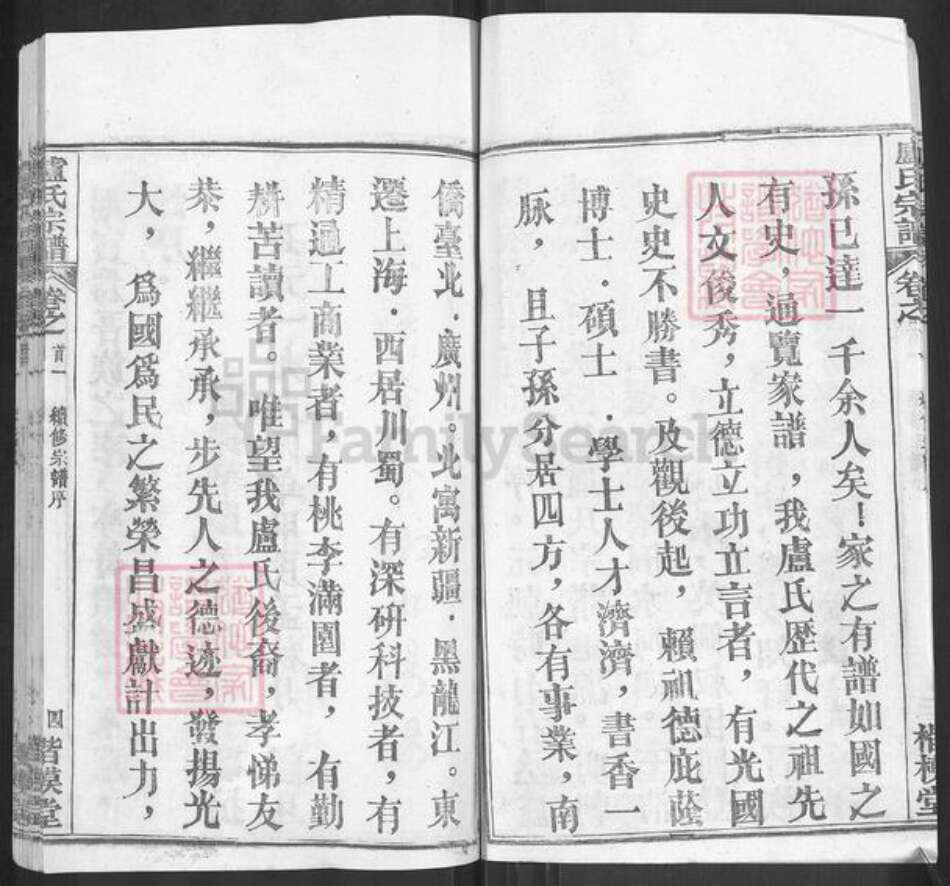 孫已達一千余人矣！家之有譜如國之
有史，遍覽家譜，我盧氏歷代之祖先
人文俊秀，立德立功立言者，有光國
史史不勝書。及觀後起，賴祖德庇蔭
博士．碩士．學士人才濟濟，書香一
脉，且子孫分居四方，各有事業，南
僑臺北．廣州。北寓新疆．黑龍江。東
遷上海．西居川蜀。有深研科技者，有
精通工商業者，有桃李滿園者，有勤
耕苦讀者。唯望我盧氏後裔，孝悌友
恭，繼繼承承，步先人之德迹，發揚光
大，爲國爲民之繁榮昌盛獻計出力，
盧氏宗譜 卷之首一 續修宗譜序 四 楷模堂
FamilySearch